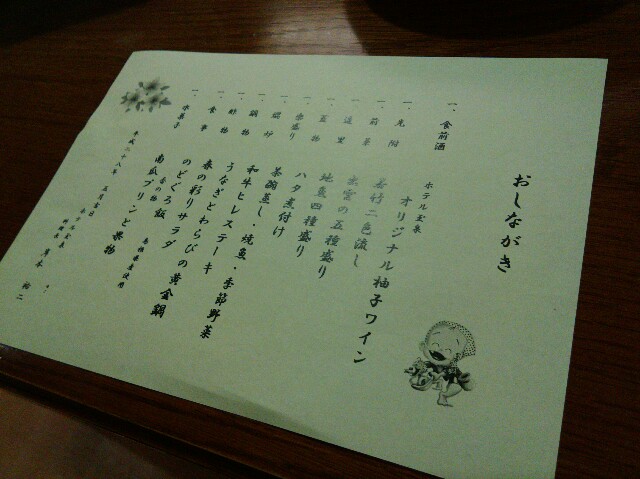 おしながき
一、食前酒
ホテル玉泉
オリジナル柚子ワイン
一、先附
若竹二色流し
一、前菜
出雲の五種盛り
一、造里
地魚四種盛り
一、煮物
ハタ煮付け
一、楽盛り
茶碗蒸し・焼魚・季節野菜
一、陶炉
和牛ヒレステーキ
一、鍋物
うなぎとわらびの黄金鍋
一、酢物
春の彩りサラダ
一、食事
のどぐろ飯 島根県産使用
香の物
一、水菓子
南瓜プリンと果物
平成二十八年 五月吉日
ホテル玉泉
料理長
祐二